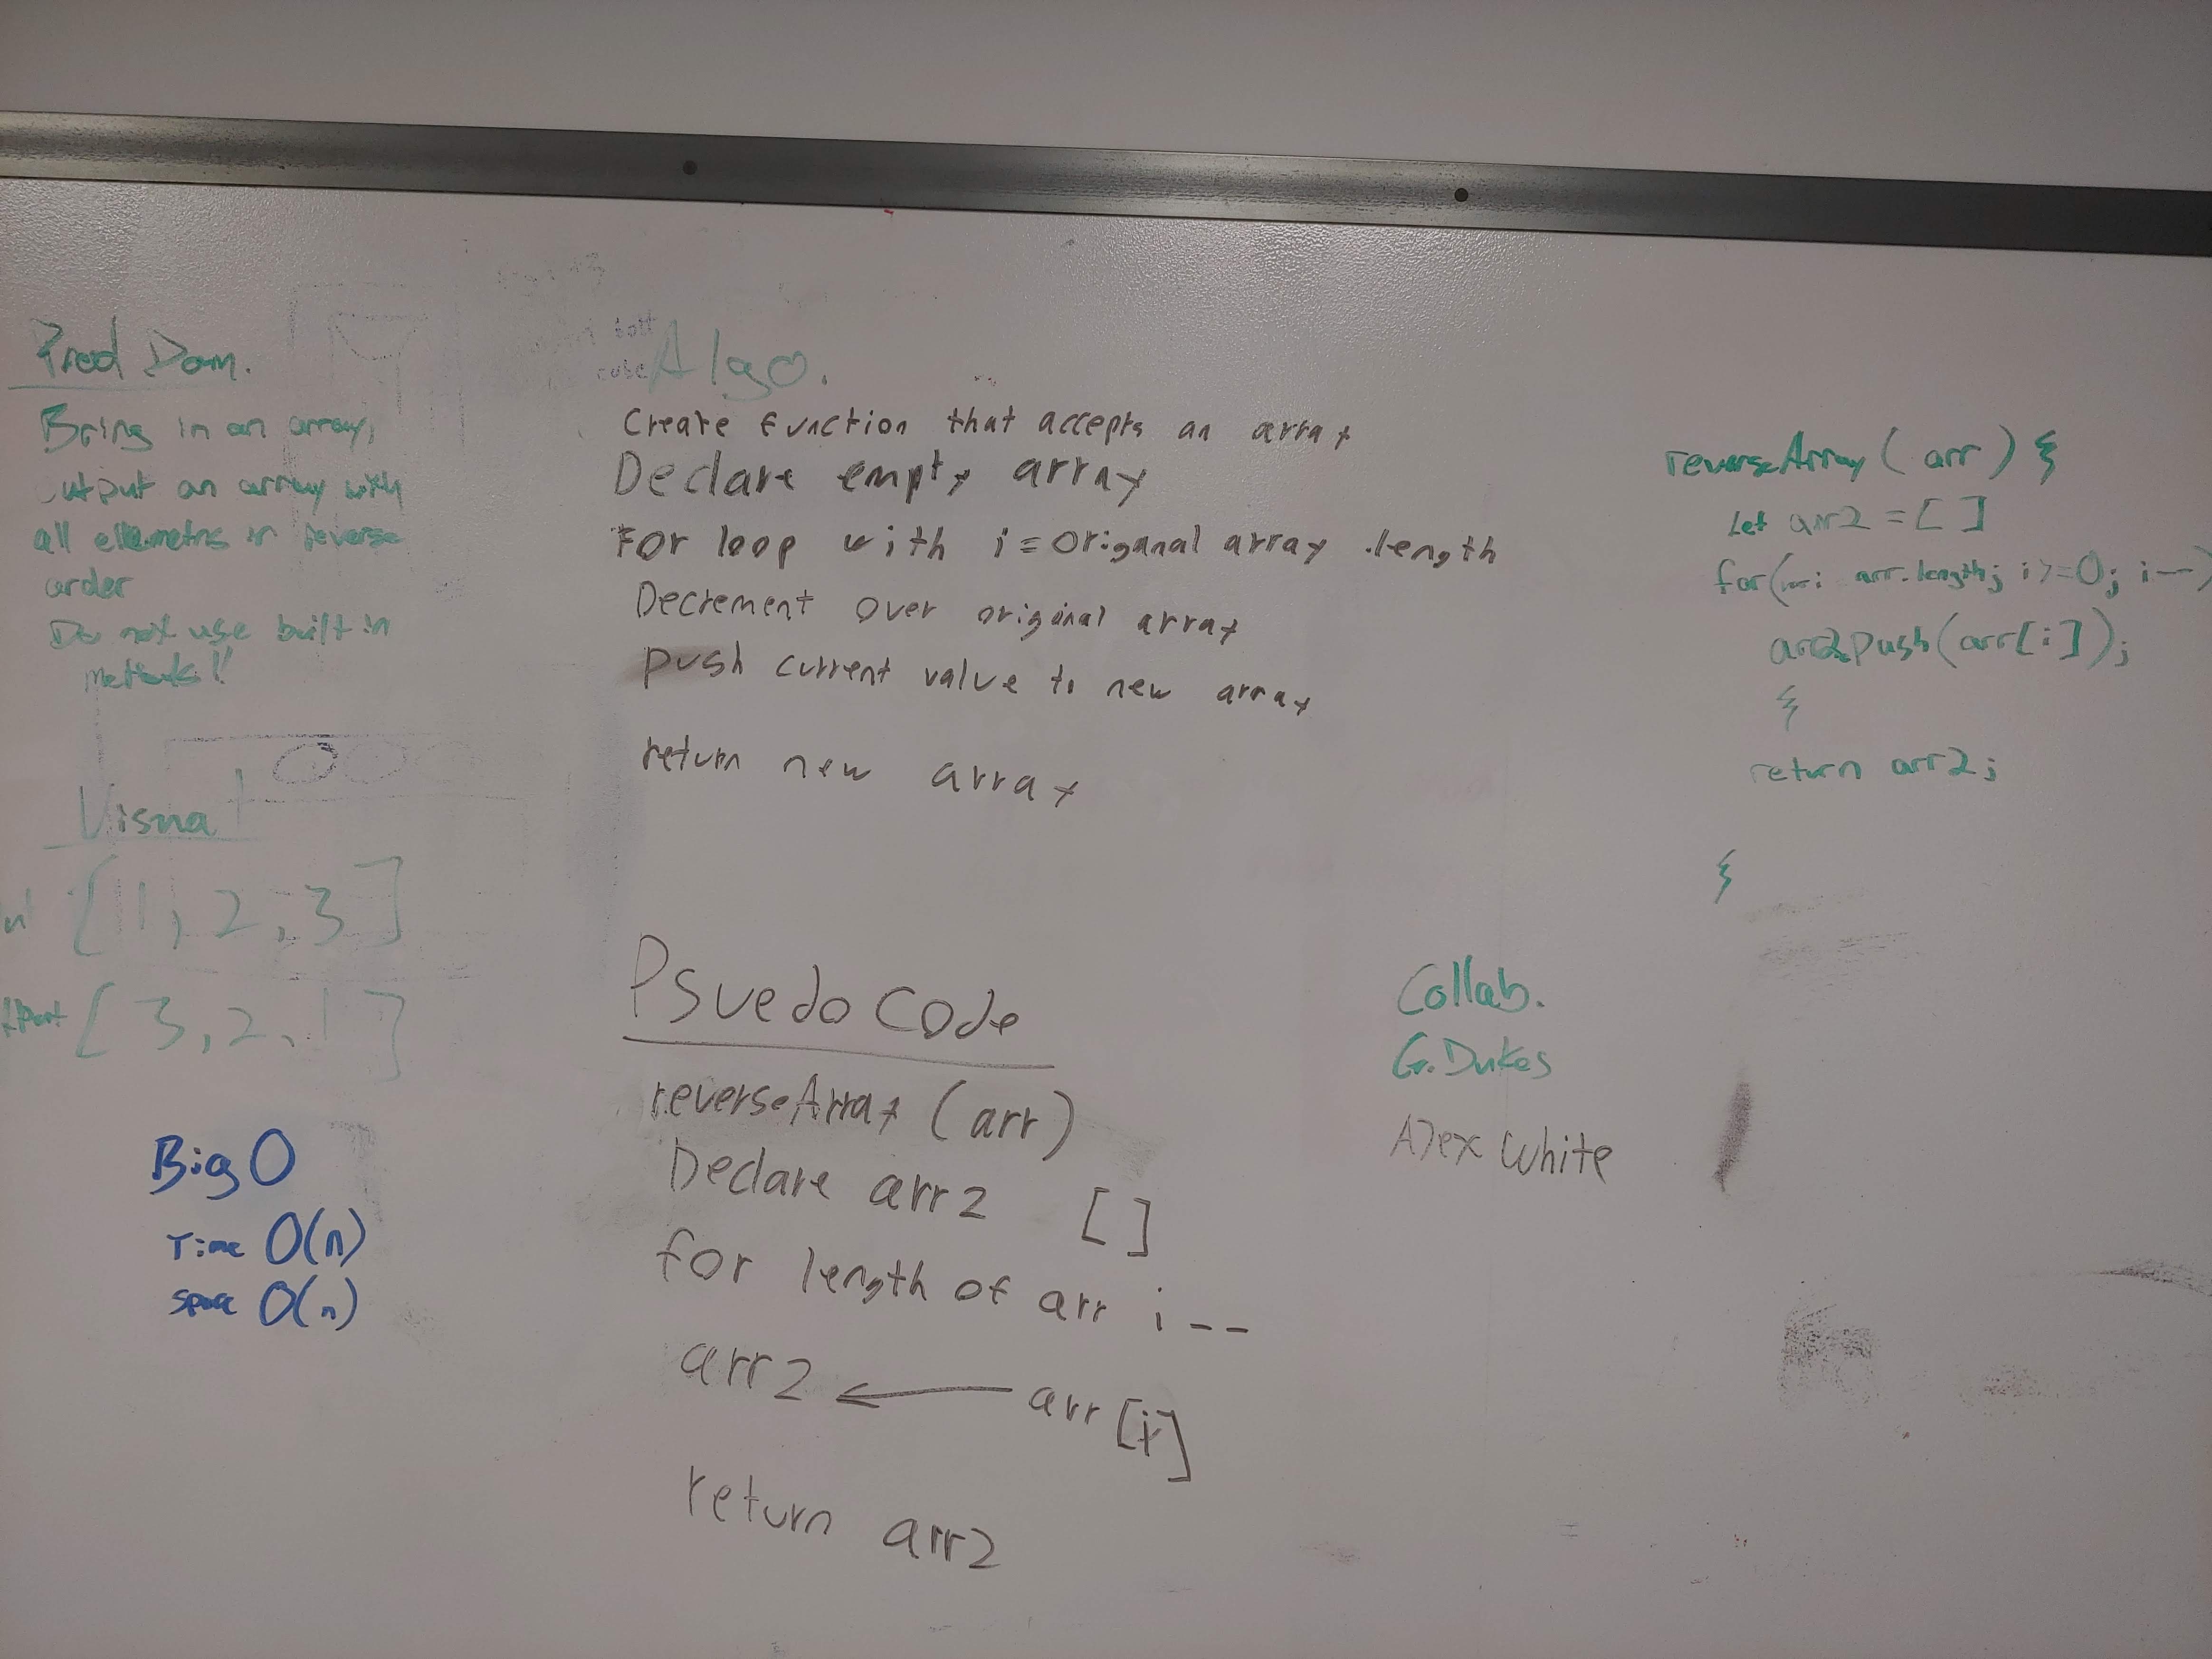 Prod Dom.
Bring in an array,
utput an array with
all ellemetns in reverse
order
Do not use built in
methods!
Visual
[1, 2, 3]
[3, 2, 1]
Big O
Time O(n)
Space O(n)
Algo.
Create function that accepts an array
Declare empty array
For loop with i = origanal array .length
Decrement over original array
push current value to new array
return new array
Psuedo Code
reverseArray (arr)
Declare arr2 []
for length of arr i--
arr2 ← arr[i]
return arr2
reverseArray (arr) {
Let arr2 = []
for( arr.length; i>=0; i--)
arr2.push(arr[i]);
}
return arr2;
}
Collab.
G. Dukes
Alex White